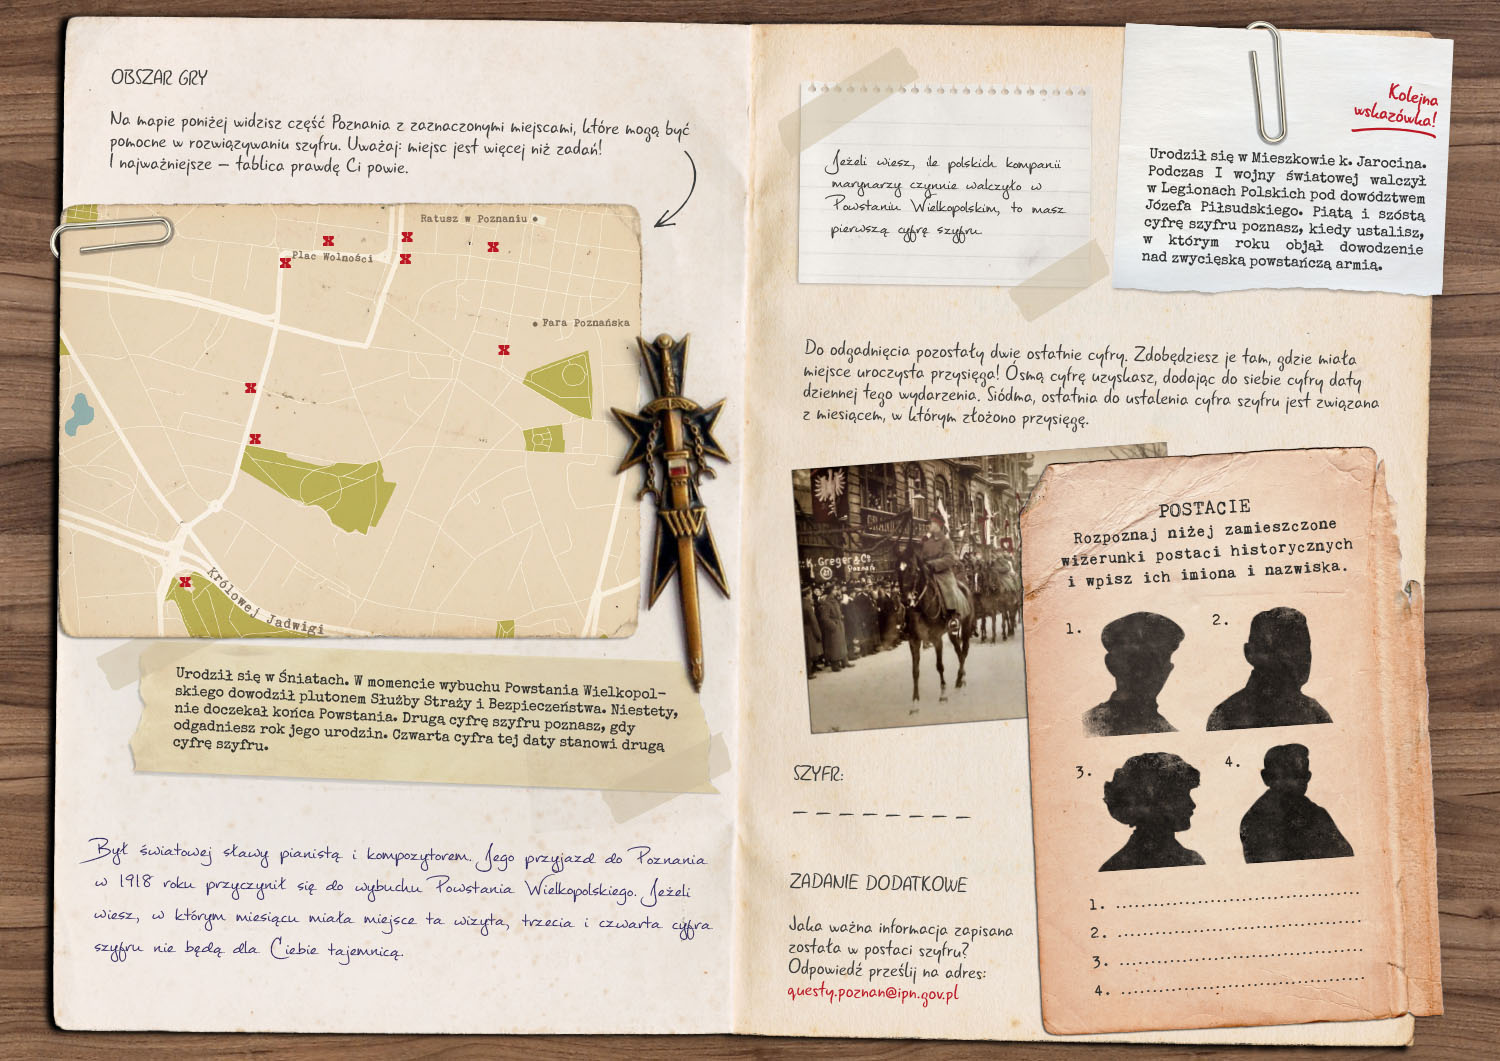 OBSZAR GRY
Na mapie poniżej widzisz część Poznania z zaznaczonymi miejscami, które mogą być
pomocne w rozwiązywaniu szyfru. Uważaj: miejsc jest więcej niż zadań!
I najważniejsze – tablica prawdę Ci powie.
Ratusz w Poznaniu
Plac Wolności
Fara Poznańska
Królowej Jadwigi
Urodził się w Śniatach. W momencie wybuchu Powstania Wielkopol-
skiego dowodził plutonem Służby Straży i Bezpieczeństwa. Niestety,
nie doczekał końca Powstania. Drugą cyfrę szyfru poznasz, gdy
odgadniesz rok jego urodzin. Czwarta cyfra tej daty stanowi drugą
cyfrę szyfru.
Był światowej sławy pianistą i kompozytorem. Jego przyjazd do Poznania
w 1918 roku przyczynił się do wybuchu Powstania Wielkopolskiego. Jeżeli
wiesz, w którym miesiącu miała miejsce ta wizyta, trzecia i czwarta cyfra
szyfru nie będą dla Ciebie tajemnicą.
Jeżeli wiesz, ile polskich kompanii
marynarzy czynnie walczyło w
Powstaniu Wielkopolskim, to masz
pierwszą cyfrę szyfru
Kolejna
wskazówka!
Urodził się w Mieszkowie k. Jarocina.
Podczas I wojny światowej walczył
w Legionach Polskich pod dowództwem
Józefa Piłsudskiego. Piątą i szóstą
cyfrę szyfru poznasz, kiedy ustalisz,
w którym roku objął dowodzenie
nad zwycięską powstańczą armią.
Do odgadnięcia pozostały dwie ostatnie cyfry. Zdobędziesz je tam, gdzie miała
miejsce uroczysta przysięga! Ósmą cyfrę uzyskasz, dodając do siebie cyfry daty
dziennej tego wydarzenia. Siódma, ostatnia do ustalenia cyfra szyfru jest związana
z miesiącem, w którym złożono przysięgę.
K. Greger & Co.
Poznań
POSTACIE
Rozpoznaj niżej zamieszczone
wizerunki postaci historycznych
i wpisz ich imiona i nazwiska.
1.
2.
3.
4.
1. ........................................
2. ........................................
3. ........................................
4. ........................................
SZYFR:
_ _ _ _ _ _ _ _
ZADANIE DODATKOWE
Jaka ważna informacja zapisana
została w postaci szyfru?
Odpowiedź prześlij na adres:
questy.poznan@ipn.gov.pl